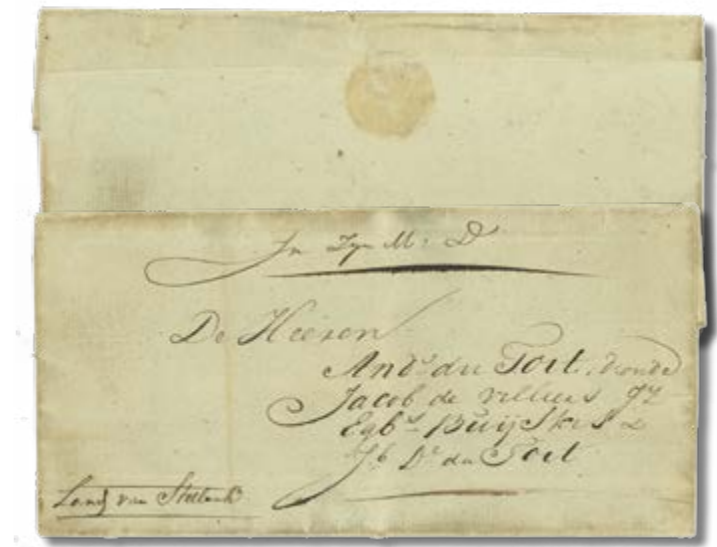 In Zyn M: D
De Heeren
And:s du Toit,
Jacob de Villiers JZ
Egb:s Buijskes &
Jb Ds du Toit
Land van